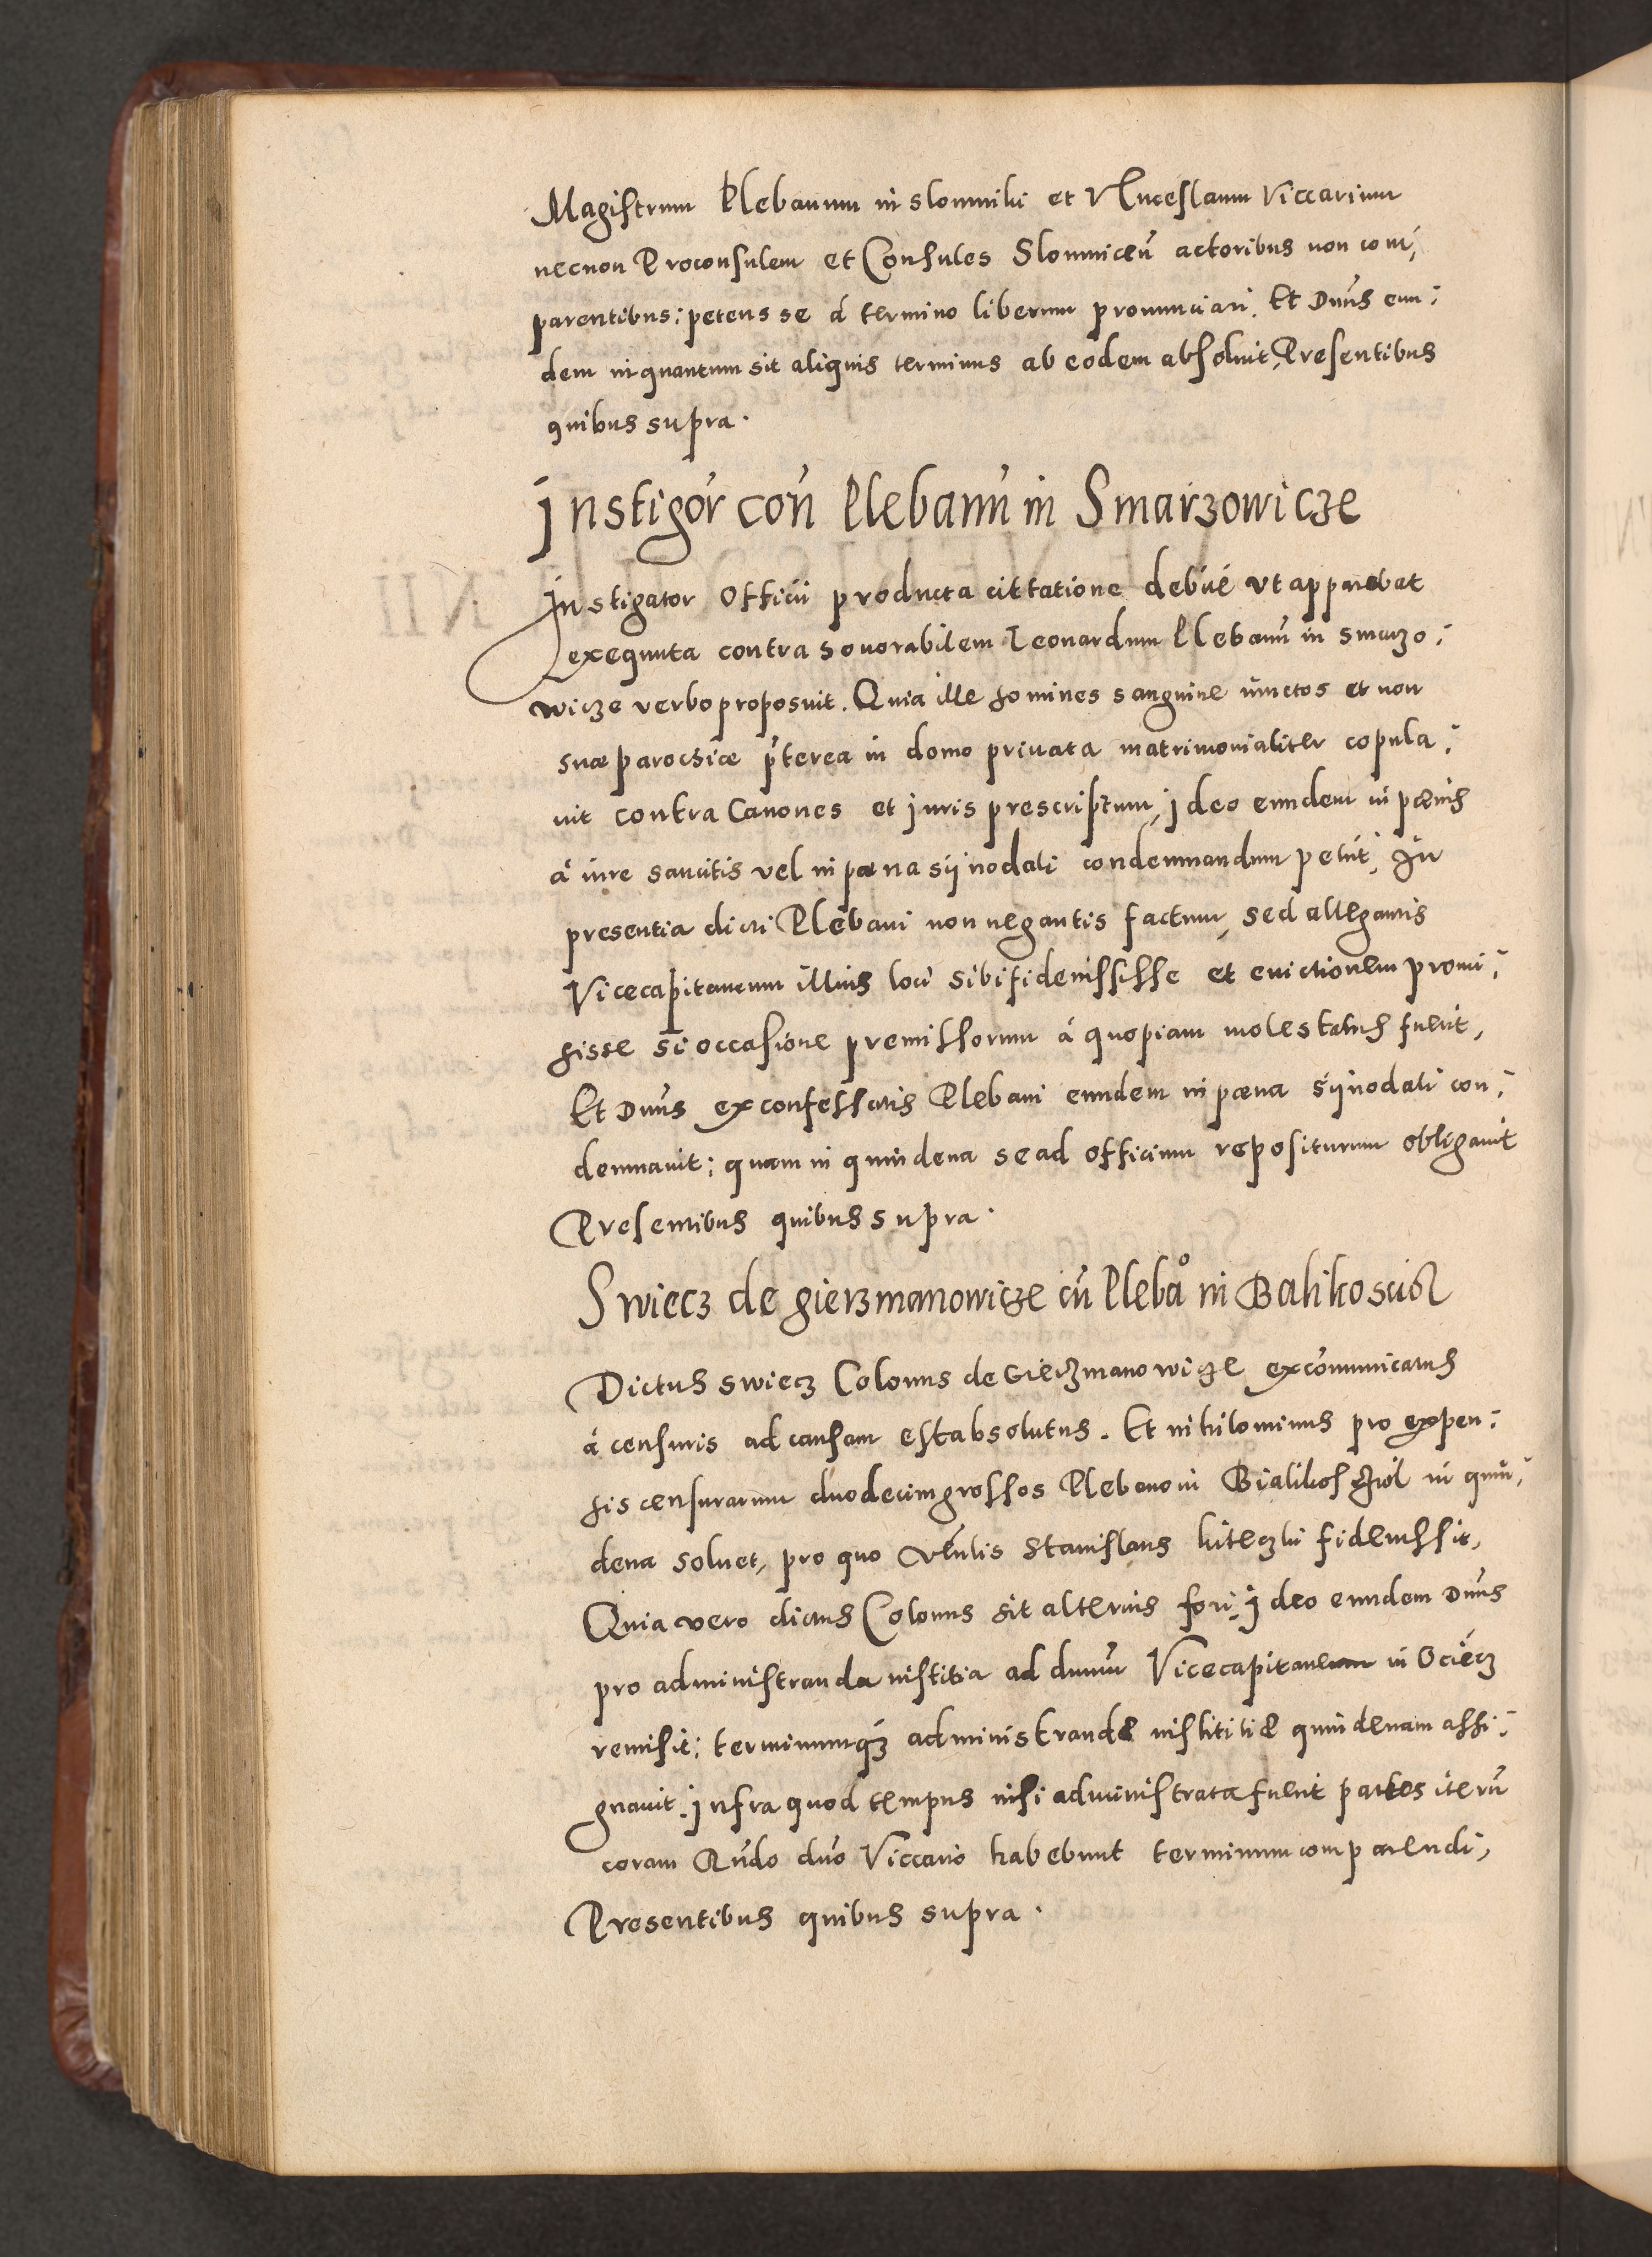 Magistrum Plebanum in slomniki et Vynceslaum Viccarium
necnon Proconsulem et Consules Slomniceñ actoribus non com¡
parentibus: petens se á termino liberum pronunciari. Et Dnūs eun¡
dem inquantum sit aliquis terminus ab eodem absoluit, Presentibus
quibus supra.
Instigor con Plebanū in Smarzowicze
Instigator Officii producta cittatione debitè vt apparebat
exequuta contra honorabilem Leonardum Plebanū in smarzo¡
wicze verbo proposuit. Quia ille homines sanguine iunctos et non
suæ parochiæ pṙterea in domo priuata matrimonialiter copula¡
uit contra Canones et iuris prescriptum, ideo eundem in pœnis
à iure sancitis vel in pœna sÿnodali condemnandum petiit, In
presentia dicti Plebani non negantis factum, sed allegantis
Vicecapitaneum illius loci sibi fideiussisse et euictionem promi¡
sisse si occasione premissorum á quopiam molestatus fuerit,
Et Dnūs ex confessatis Plebani eundem in pœna sÿnodali con¡
demnauit: quam in quindena se ad officium repositurum obligauit
Presentibus quibus supra.
Swiecz de gierzmanowicze cū Plebå in Balikosciol
Dictus swiecz Colonus de Gierzmanowicze excōmunicatus
á censuris ad causam est absolutus. Et nihilominus pro expen¡
sis censurarum duodecim grossos Plebano in Bialikosczioł in quin¡
dena soluet, pro quo Vēnlis Stanislaus kiteczki fideiussit,
Quia vero dictus Colonus sit alterius fori, ideo eundem Dnūs
pro administranda iustitia ad dnum̄ Vicecapitaneum in Ociécz
remisit: terminumq́ꝫ administrandæ iustititiæ quindenam assi¡
gnauit. infra quod tempus nisi administrata fuerit partes iterū
coram Rn̄do dn̄o Viccario habebunt terminum comparendi,
Presentibus quibus supra.